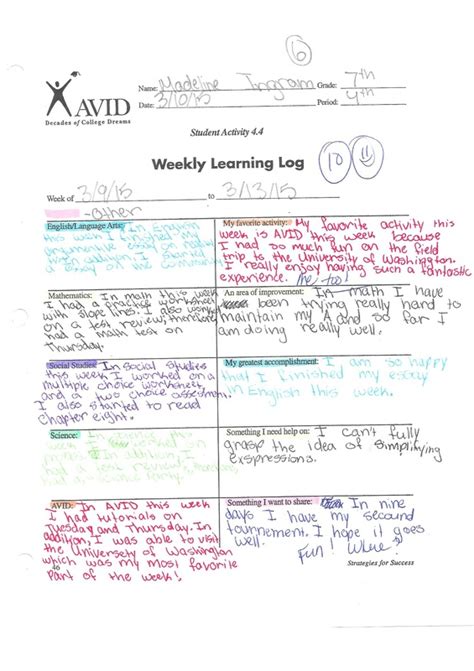 6
AVID
Decades of College Dreams
Name: Madeline Ingram Grade: 7th
Date: 3/10/15 Period: 4th
Student Activity 4.4
Weekly Learning Log
10
Week of 3/9/15 to 3/13/15
-Other
English/Language Arts: In English
this week I
essay on
In addition, I started
a essay on the
My favorite activity: My favorite activity this
week is AVID this week because
I had so much fun on the field
trip to the University of Washington.
I really enjoy having such a fantastic
experience. me too!
Mathematics: In math this week
I had a practice worksheet
with slope lines. I also worked
on a test review, therefore
had a math test on
Thursday.
An area of improvement: In math I have
been trying really hard to
maintain my A and so far I
am doing really well.
Social Studies: In Social Studies
this week I worked on a
multiple choice worksheet,
and a two choice assesment.
I also started to read
chapter eight.
My greatest accomplishment: I am so happy
that I finished my essay
in English this week.
Science: In science this
week I
In addition, I
had a
test review, therefore,
I had a
Something I need help on: I can't fully
grasp the idea of simplifying
exspressions.
AVID: In AVID this week
I had tutorials on
Tuesday and Thursday. In
addition, I was able to visit
the University of Washington
which was my most favorite
part of the week!
46
Something I want to share: In nine
days I have my second
tournement. I hope it goes
well.
Fun!
Strategies for Success